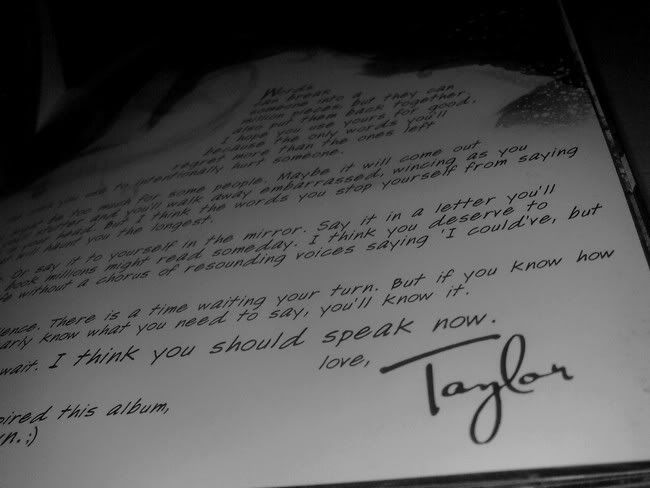 Words
can break
someone into a
million pieces, but they can
also put them back together.
I hope you use yours for good,
because the only words you'll
regret more than the ones left
to intentionally hurt someone.
be too much for some people. Maybe it will come out
stutter and you'll walk away embarrassed, wincing as you
your head. But I think the words you stop yourself from saying
will haunt you the longest.
Or say it to yourself in the mirror. Say it in a letter you'll
book millions might read someday. I think you deserve to
without a chorus of resounding voices saying 'I could've, but
There is a time waiting your turn. But if you know how
know what you need to say, you'll know it.
wait. I think you should speak now.
love,
Taylor
this album,
:)